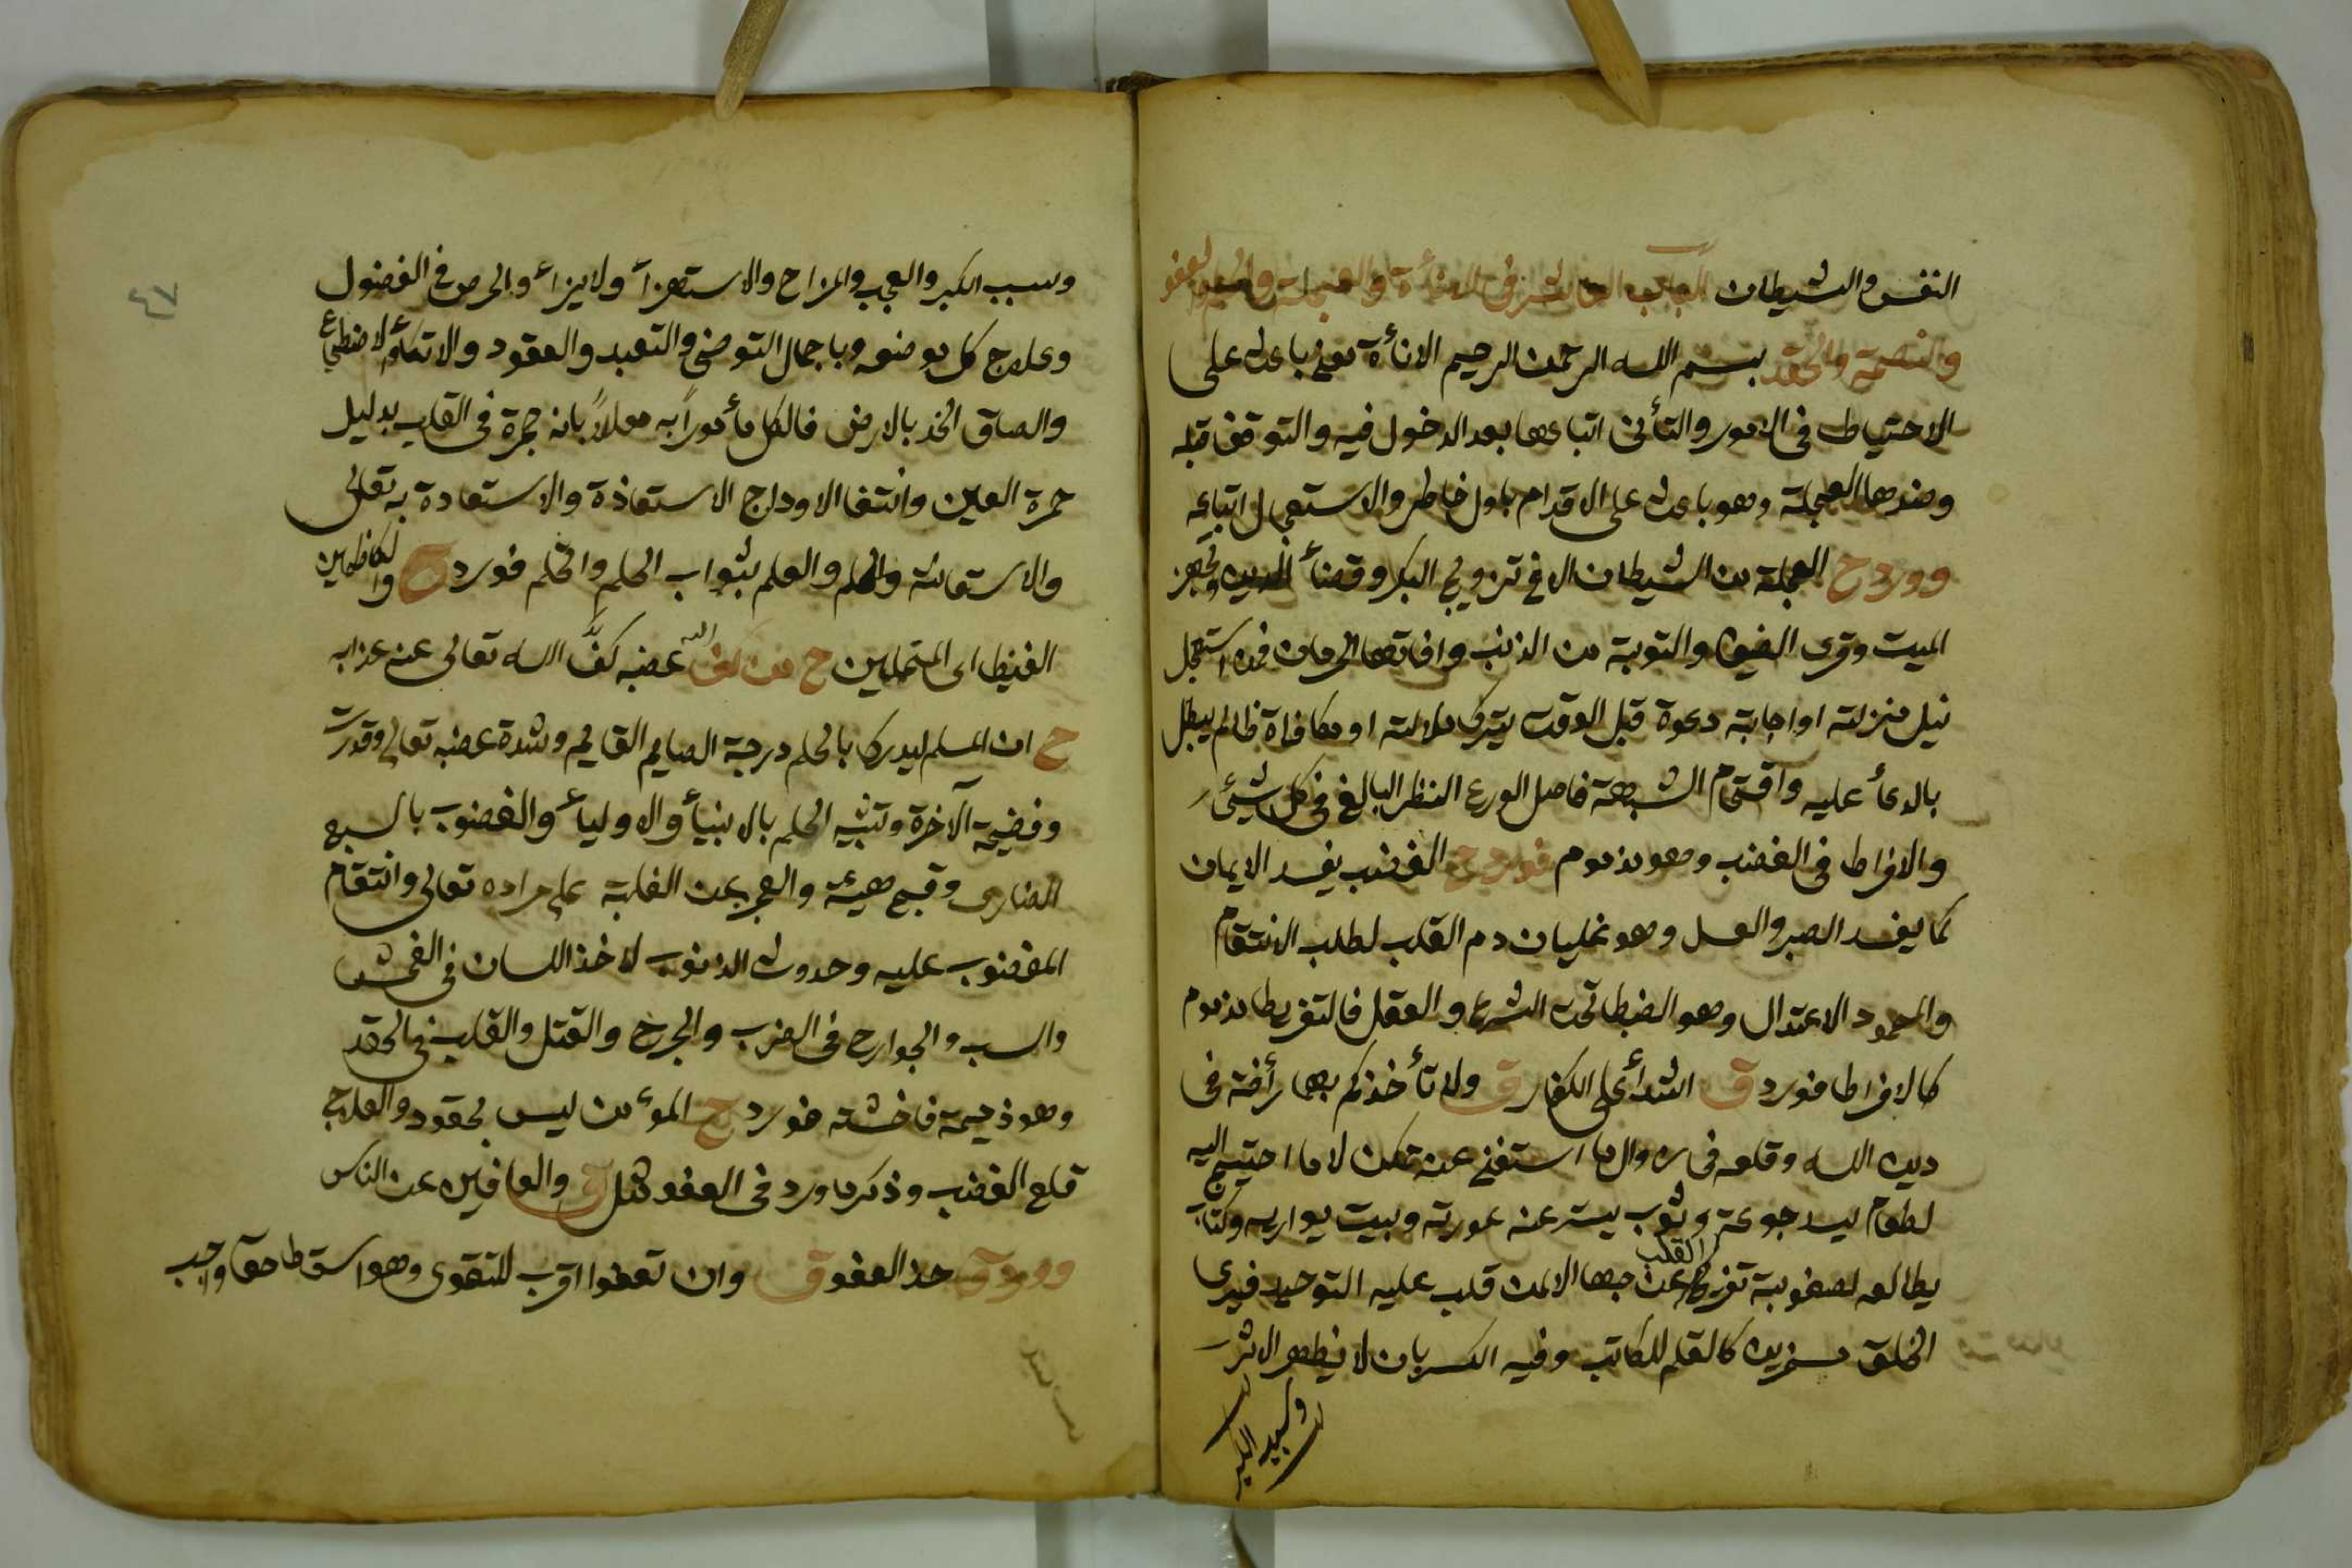 النفس والشيطان الباب العاشر فى الاناءة والعجلة والحلم والعفو
والنصمة والحقد بسم الله الرحمن الرحيم الاناءة معنى باعث على
الاحتياط فى الامور والتأنى اتباعها بعد الدخول فيه والتوقف قبله
وضدها العجلة وهو باعث على الاقدام باول خاطر والاستعجال اتباعه
وورد ح العجلة من الشيطان الا فى تزويج البكر وقضاء الدين وتجهيز
الميت وقرى الضيف والتوبة من الذنب وافاتها الحرمان فمن استعجل
نيل منزلته او اجابة دعوة قبل الوقت يترك ملالته او مكافاة ظالم يبطل
بالدعاء عليه واقتحام الشبهة فاصل الورع النظر البالغ فى كل شيئ
والافراط فى الغضب وهو مذموم فورد ح الغضب يفسد الايمان
كما يفسد الصبر والعسل وهو غليان دم القلب لطلب الانتقام
والمحمود الاعتدال وهو الضبط تحت الشرع والعقل فالتفريط مذموم
كالافراط فورد ق اشداء على الكفار ق ولا تأخذكم بهما رأفة فى
دين الله وقلعه فى زوال ما استغنى عنه تمكن لا ما احتيج اليه
لطعام يسد جوعة وثوب يستر عنه عورته وبيت يواريه وكتاب
يطالعه لصعوبة تفريغ القلب عن حبها الا لمن قلب عليه التوحيد فيرى
الخلق مسخرين كالقلم للكاتب وفيه الكسر بان لا يظهر الاثر
وسبب الكبر
وسبب الكبر والعجب والمزاح والاستهزاء ولايزاء والحرص فى الفضول
وعلاج كل بوضعه وباجمال التوضئ والتعبد والعقود والاتكاء لاضطجاع
والصاق الخد بالارض فالكل مأمورا به معللاً بانه جمرة فى القلب بدليل
حمرة العين وانتفاا الاوداج الاستعاذة والاستعادة به تعالى
والاستعانة والحلم والعلم بثواب الحلم والتحلم فورد ح والكاظمين
الغيظ اى المتحلمين ح من كف غضبه كفَّ الله تعالى عنه عذابه
ح ان المسلم ليدرك بالحلم درجة الصايم القايم وشدة غضبه تعالى وقدرت
وفضيحة الآخرة وتشبه الحلم بالانبياء والاولياء والغضوب بالسبع
الضارى وقبح هيئة والعجز عن الغلبة على مراده تعالى وانتقام
المغضوب عليه وحدوث الذنوب لاخذ اللسان فى الفحش
والسب والجوارح فى الضرب والجرح والقتل والقلب فى الحقد
وهو ذميمة فاخشته فورد ح المؤمن ليس بحقود والعلاج
قلع الغضب وذكر ما ورد فى العفو مثل ق والعافين عن الناس
وورد ق خذ العفو ق وان تعفوا اقرب للتقوى وهو اسقاط حق واجب